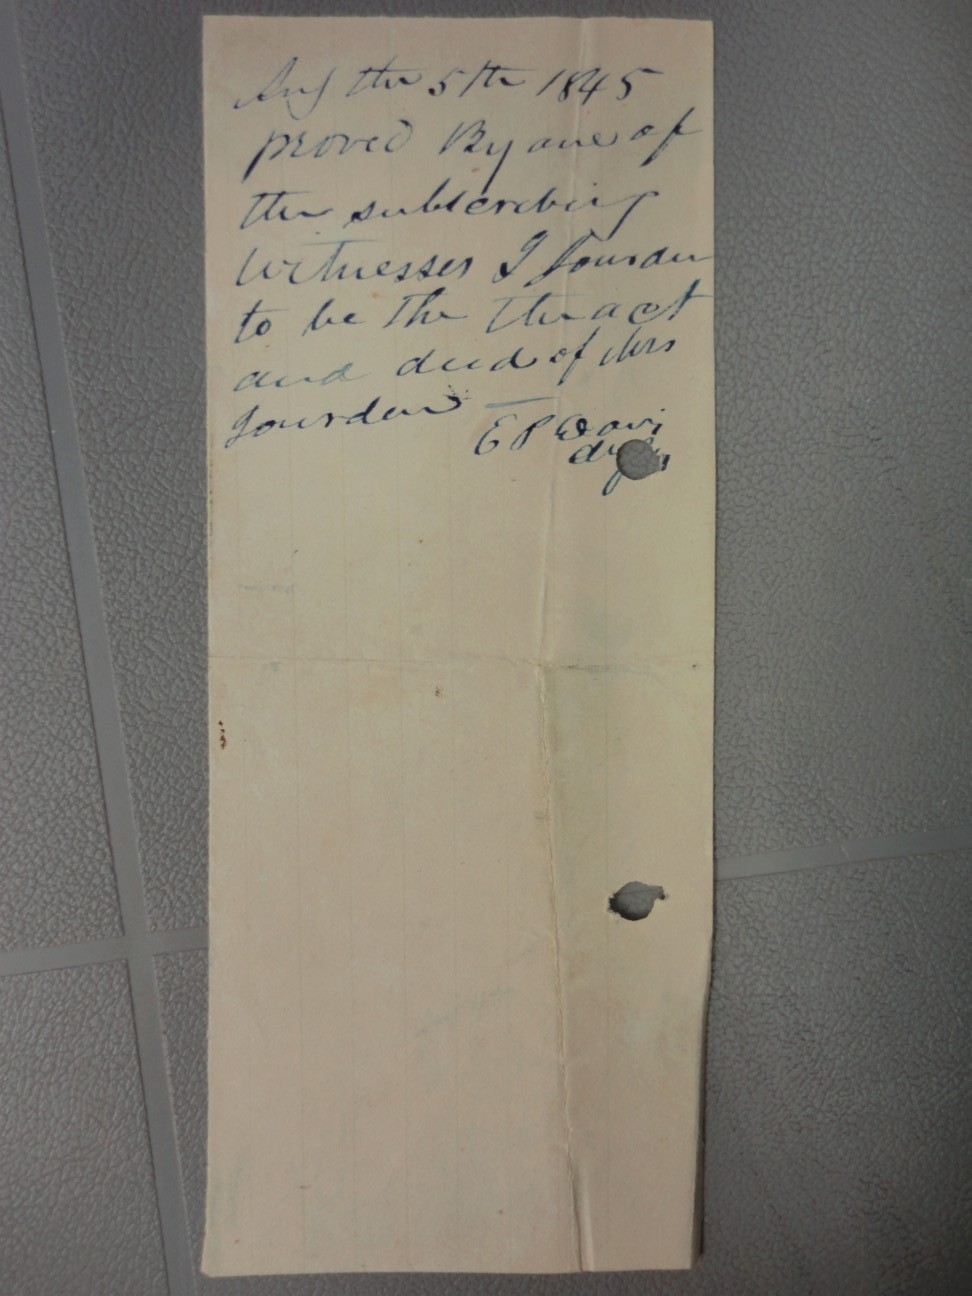 Aug the 5th 1845
proved By one of
the subscribing
witnesses J Jourdan
to be the the act
and deed of Mrs
Jourdan —
E P Davi